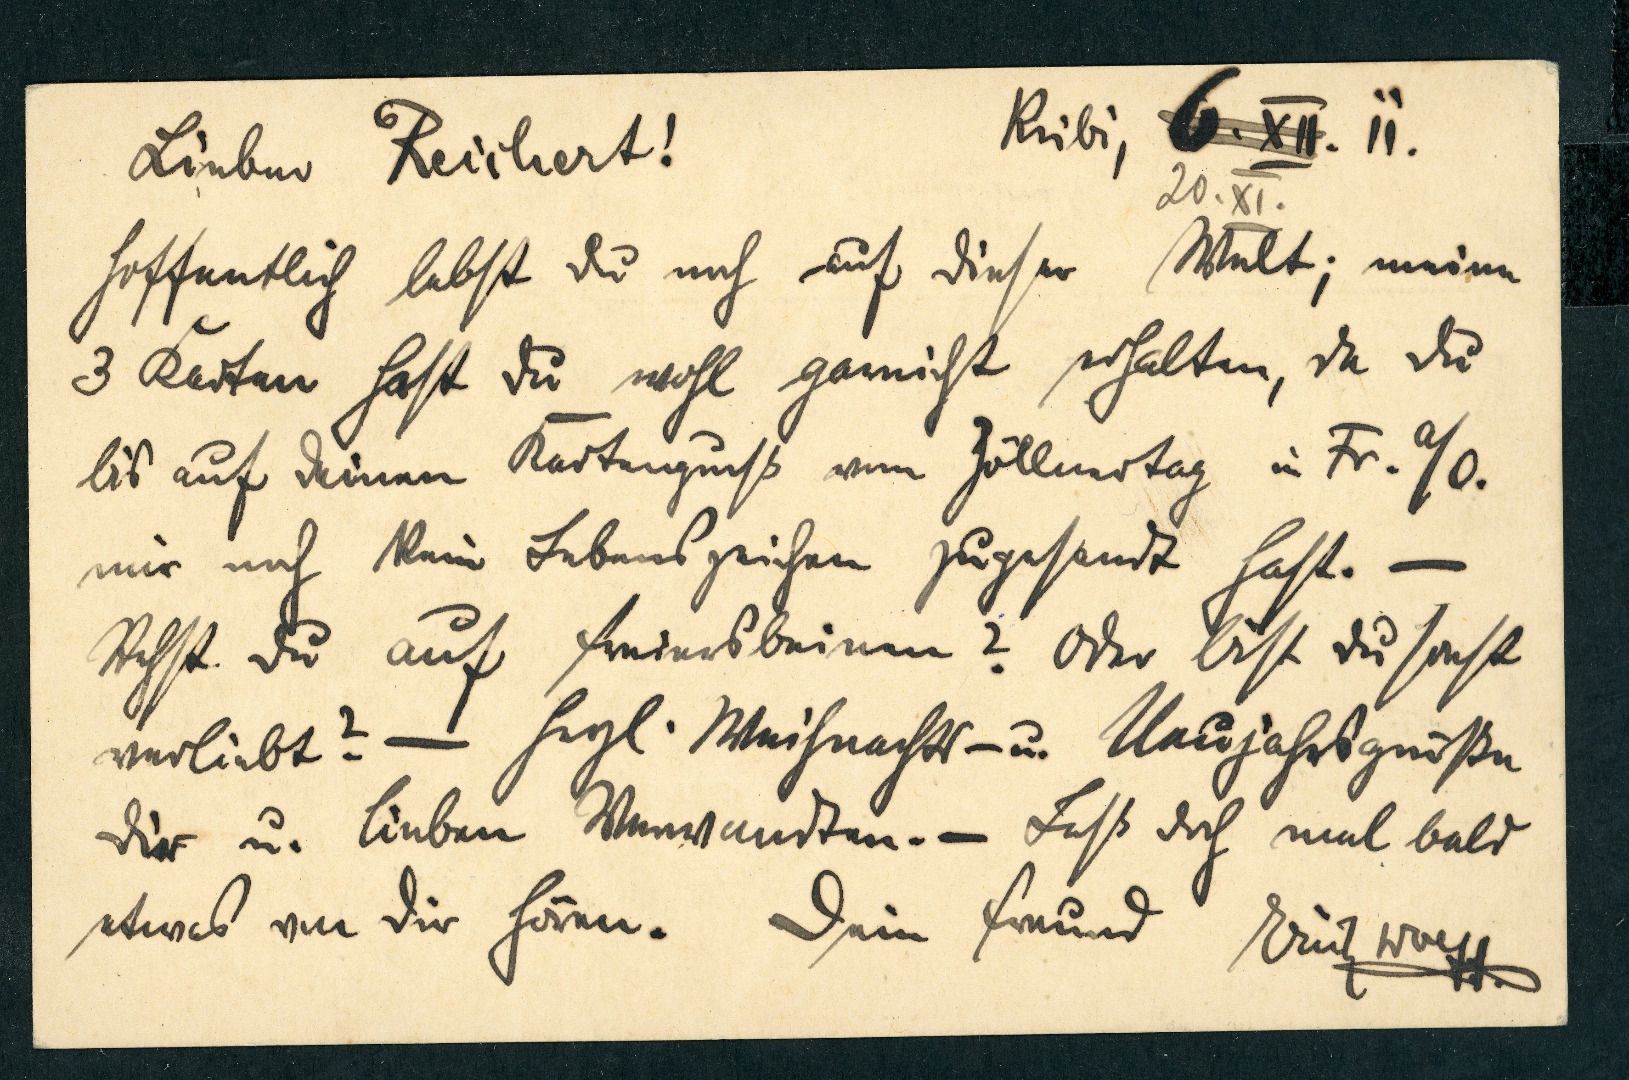 Lieber Reichert! Kribi, 6. XII. 11.
20. XI.
Hoffentlich lebst du noch auf dieser Welt; meine
3 Karten hast du wohl garnicht erhalten, da du
bis auf deinen Kartengruß vom Zöllnertag in Fr. a/O.
mir noch kein Lebenszeichen zugesandt hast. —
Gehst du auf Freiersbeinen? Oder bist du sonst
verliebt? — Herzl. Weihnachts- u. Neujahrsgrüße
dir u. lieben Verwandten. — Laß doch mal bald
etwas von dir hören. Dein Freund